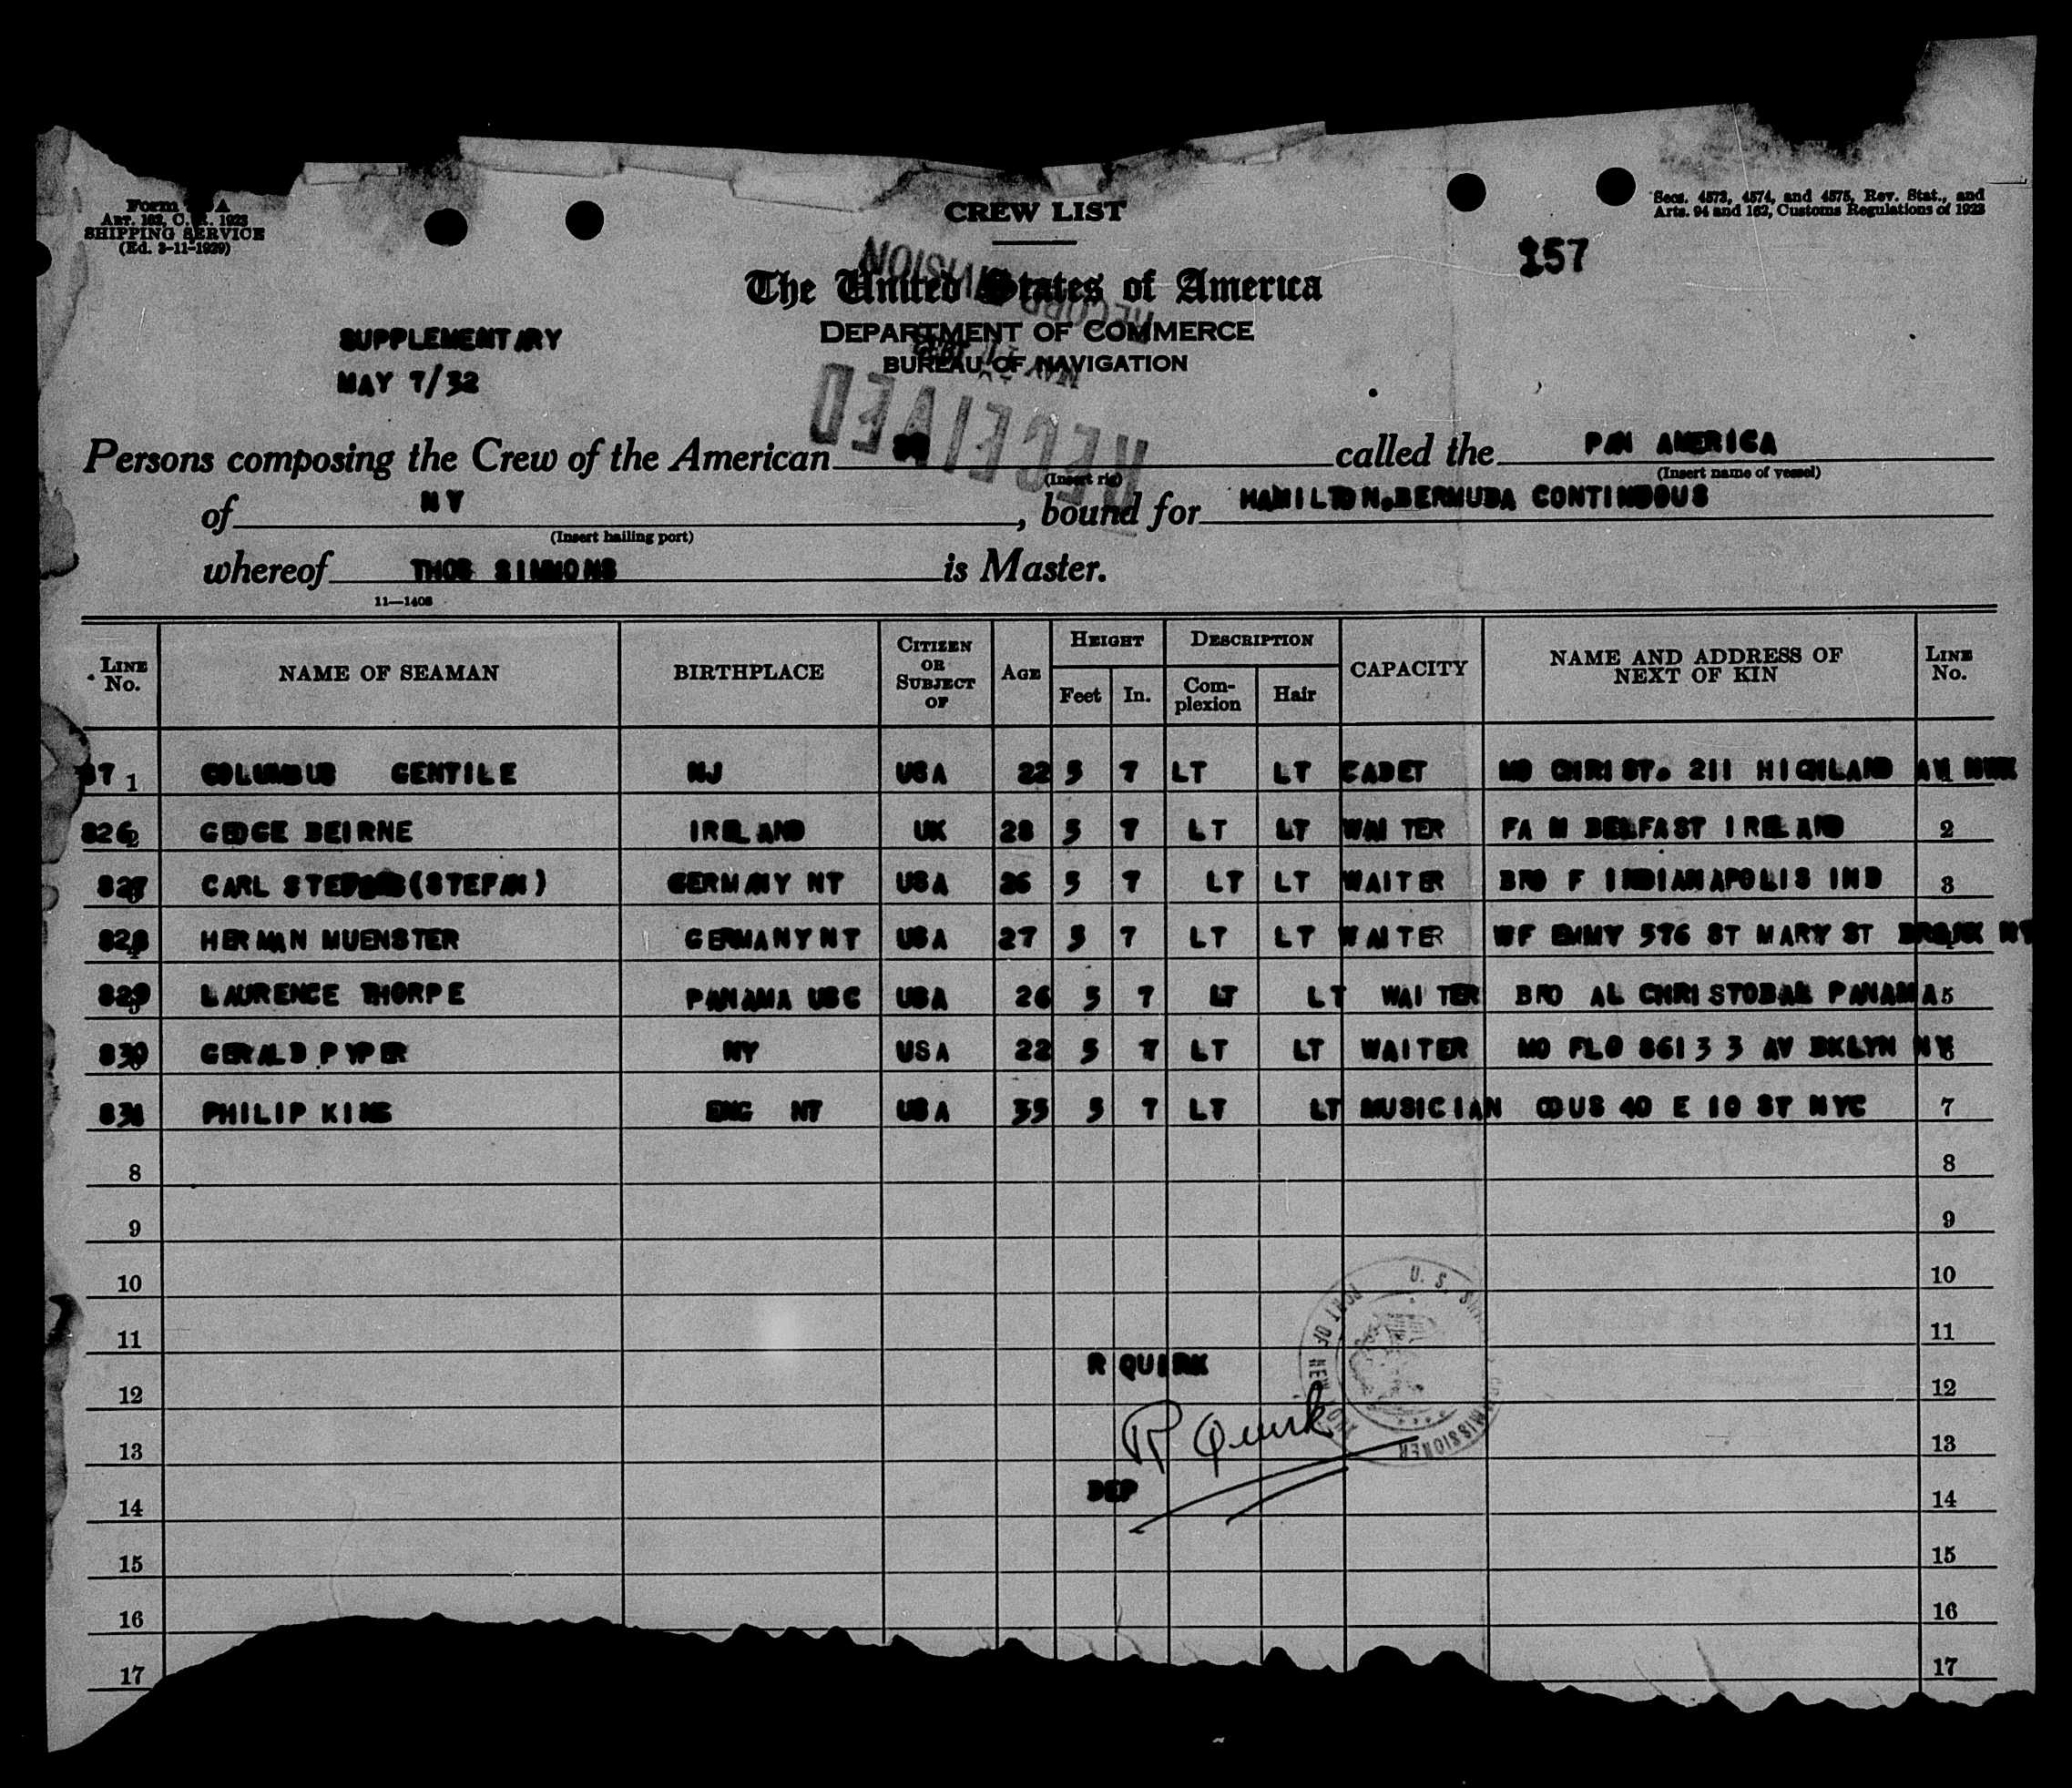 Form A
Art. 162, C. R. 1923
SHIPPING SERVICE
(Ed. 3-11-1929)
CREW LIST
Secs. 4573, 4574, and 4575, Rev. Stat., and
Arts. 94 and 162, Customs Regulations of 1923
157
The United States of America
DEPARTMENT OF COMMERCE
BUREAU OF NAVIGATION
RECORD DIVISION
RECEIVED
SUPPLEMENTARY
MAY 7/32
Persons composing the Crew of the American called the PAN AMERICA
(Insert rig) (Insert name of vessel)
of NY, bound for HAMILTON.BERMUDA CONTINUOUS
(Insert hailing port)
whereof THOS SIMMONS is Master.
11—1408
LINE No. NAME OF SEAMAN BIRTHPLACE CITIZEN OR SUBJECT OF AGE HEIGHT Feet In. DESCRIPTION Complexion Hair CAPACITY NAME AND ADDRESS OF NEXT OF KIN LINE No.
1 COLUMBUS GENTILE NJ USA 22 5 7 LT LT CADET MO CHRIST. 211 HIGHLAND AV NWK
826 2 GEOGE BEIRNE IRELAND UK 28 5 7 LT LT WAITER FA M BELFAST IRELAND 2
827 CARL (STEFAN) GERMANY NT USA 26 5 7 LT LT WAITER BRO F INDIANAPOLIS IND 3
828 HERMAN MUENSTER GERMANY NT USA 27 5 7 LT LT WAITER WF EMMY 576 ST MARY ST BRONX NY
829 LAURENCE THORPE PANAMA USC USA 26 5 7 LT LT WAITER BRO AL CHRISTOBAL PANAMA 5
830 GERALD PYPER NY USA 22 5 7 LT LT WAITER MO FLO 8613 3 AV BKLYN NY
831 PHILIP KING ENG NT USA 35 5 7 LT LT MUSICIAN COUS 40 E 10 ST NYC 7
8 8
9 9
10 10
11 11
R QUIRK
12 12
R Quirk
13 13
DEP
14 14
15 15
16 16
17 17
U. S. SHIPPING COMMISSIONER PORT OF NEW YORK